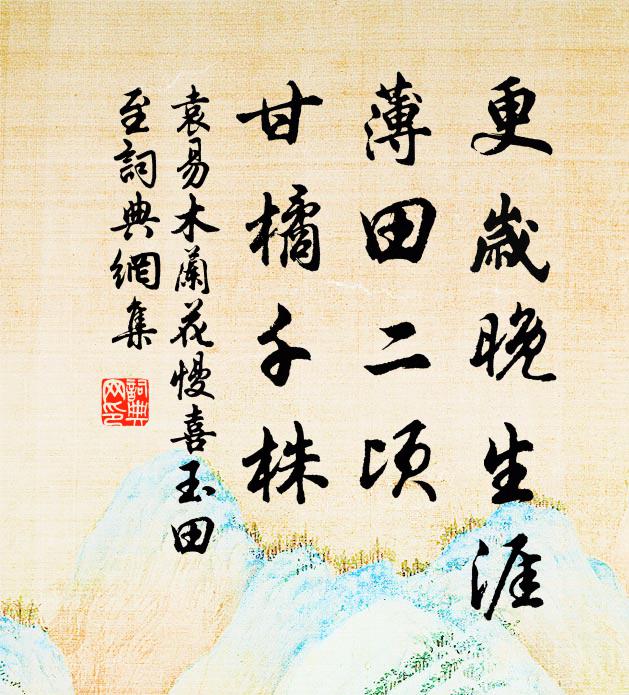 更歲晚生涯
薄田二頃
甘橘千株
袁易木蘭花慢喜玉田
至詞典網集
詞典网印